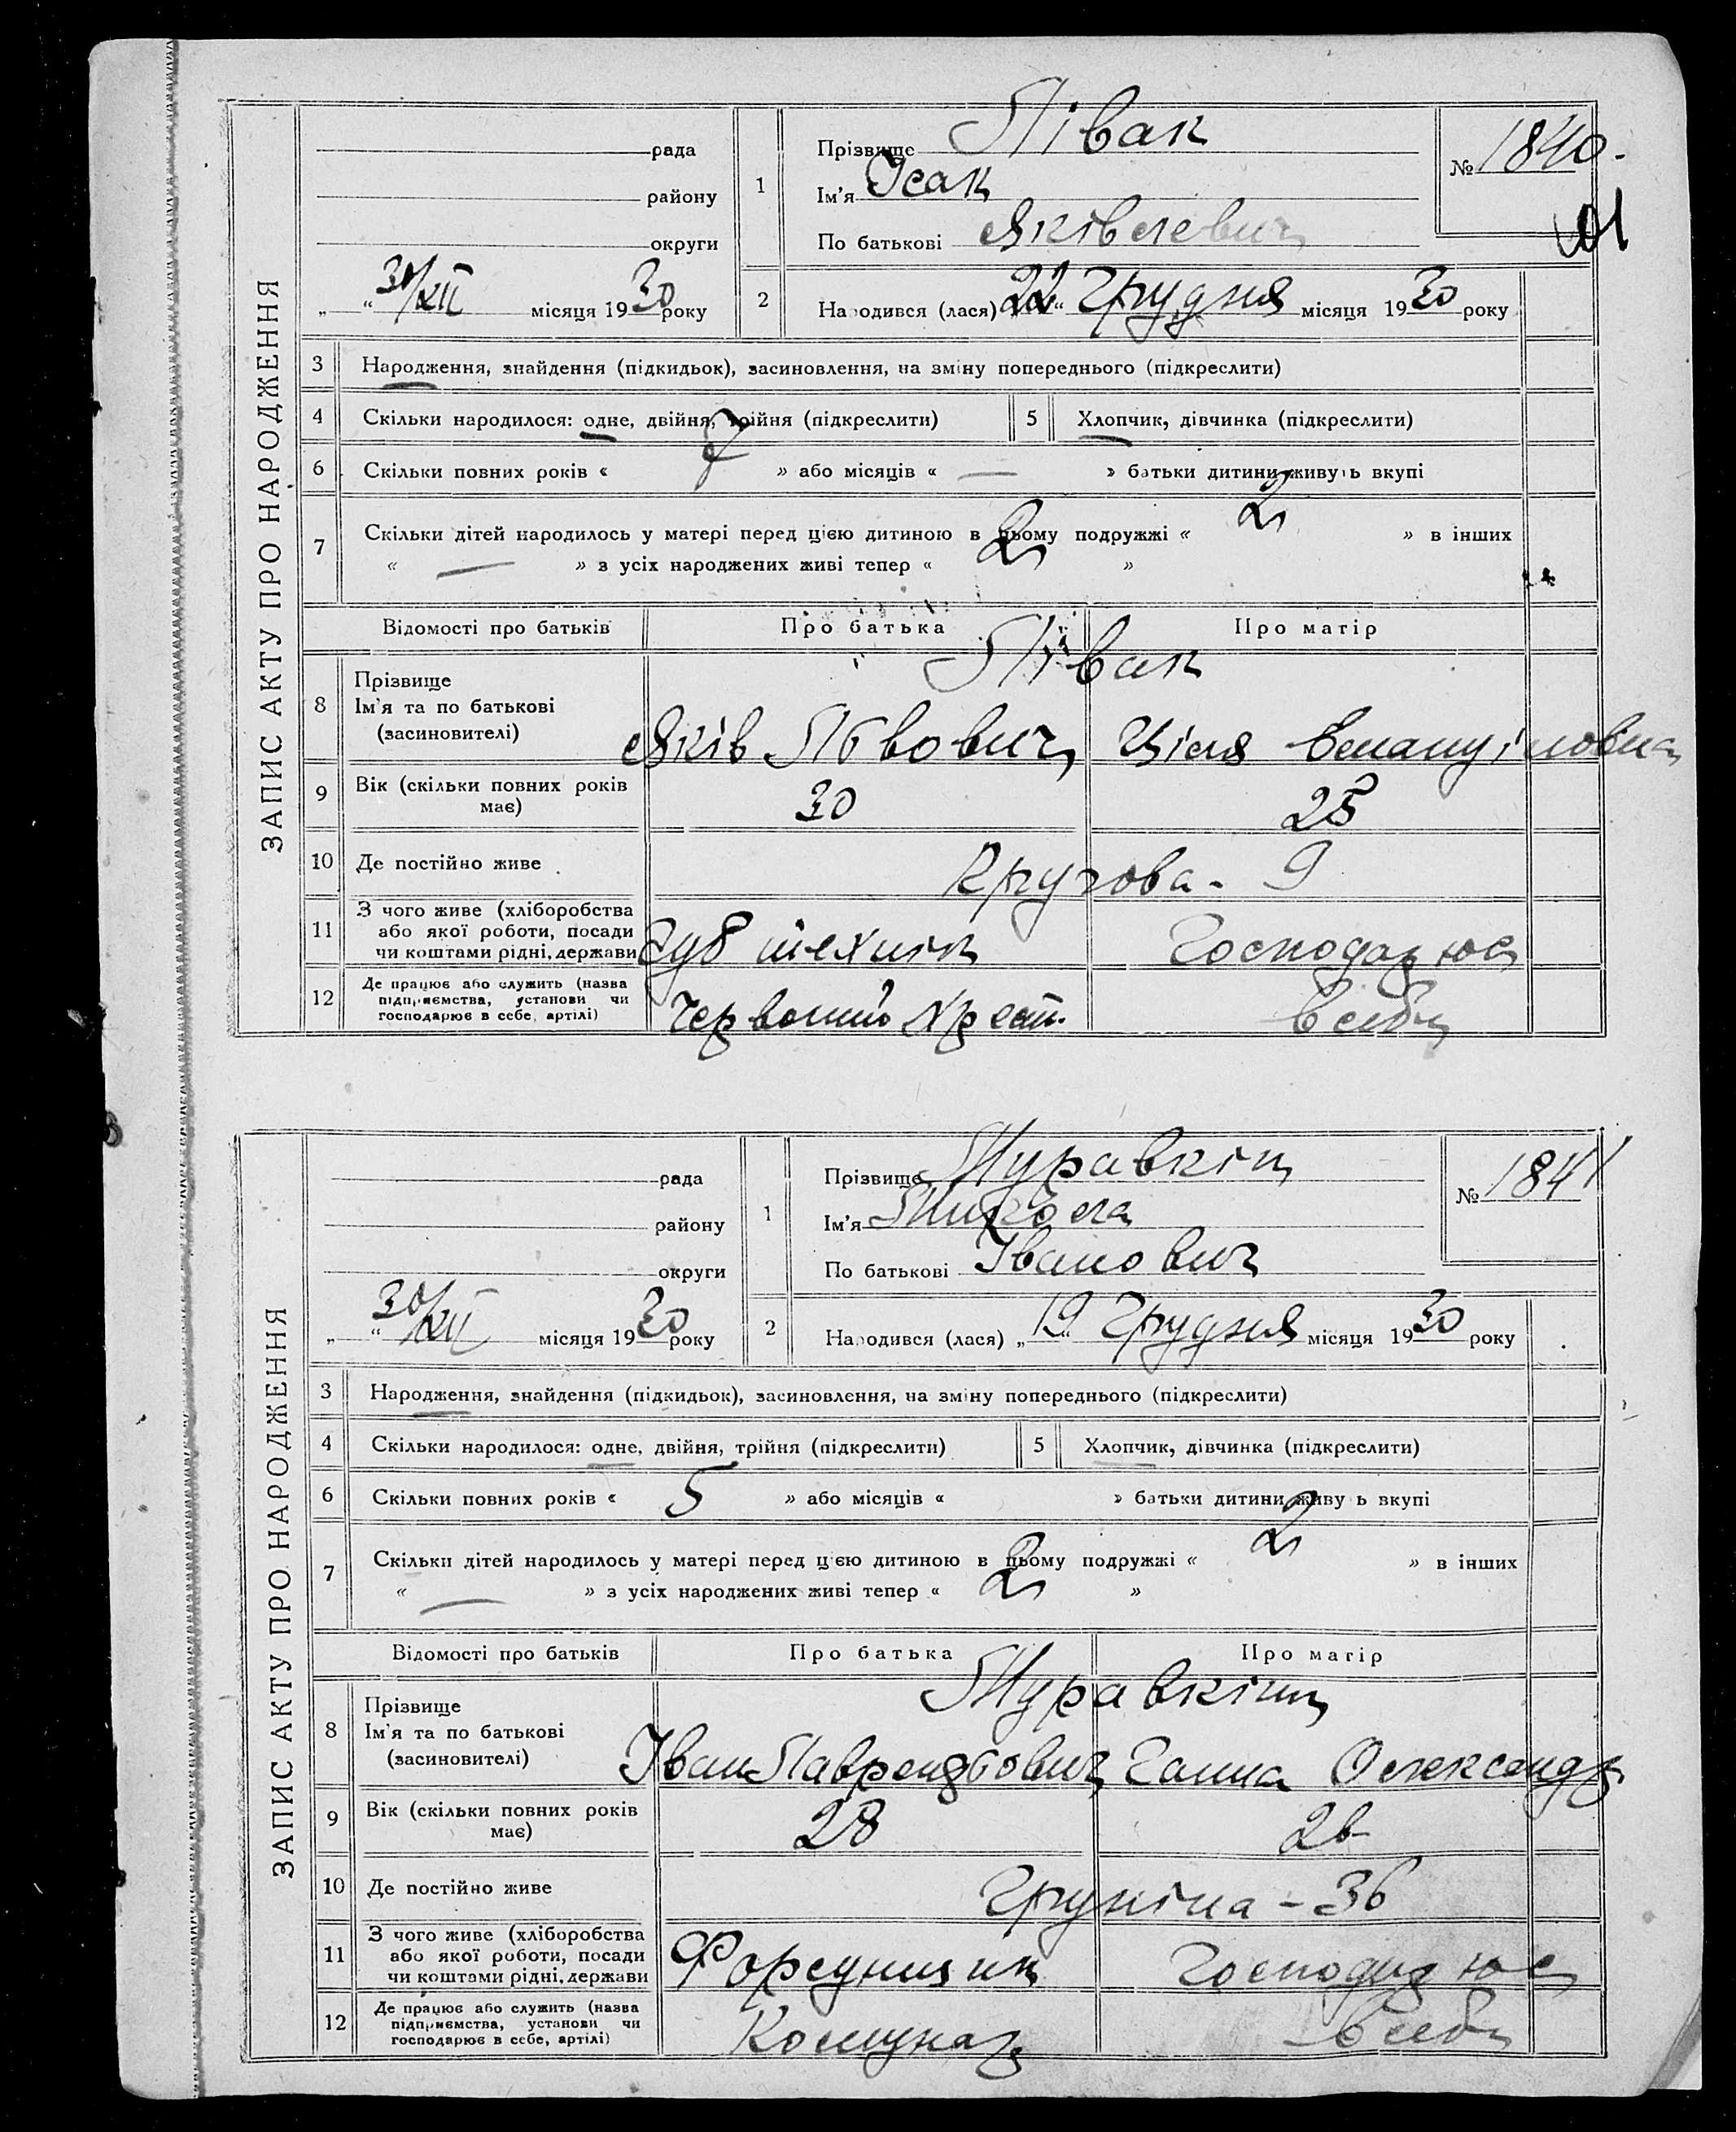 ЗАПИС АКТУ ПРО НАРОДЖЕННЯ
рада
району
округи
„ 30/XII “ місяця 1930 року
1 Прізвище Півак
Ім'я Ісак
По батькові Яківлевич
№ 1840.
2 Народився (лася) 22 “ Грудня місяця 1930 року
3 Народження, знайдення (підкидьок), засиновлення, на зміну попереднього (підкреслити)
4 Скільки народилося: одне, двійня, трійня (підкреслити) 5 Хлопчик, дівчинка (підкреслити)
6 Скільки повних років « 7 » або місяців « — » батьки дитини живуть вкупі
7 Скільки дітей народилось у матері перед цією дитиною в цьому подружжі « 2 » в інших
« — » з усіх народжених живі тепер « 2 »
Відомості про батьків Про батька Про матір
8 Прізвище
Ім'я та по батькові
(засиновителі)
Півак
Яків Львович Ціля Емануіловна
9 Вік (скільки повних років має) 30 25
10 Де постійно живе Кругова - 9
11 З чого живе (хліборобства
або якої роботи, посади
чи коштами рідні, держави
Зуб технік Господарює
12 Де працює або служить (назва
підприємства, установи чи
господарює в себе, артілі)
Червоний Хрест. в себе
ЗАПИС АКТУ ПРО НАРОДЖЕННЯ
рада
району
округи
„ 30/XII “ місяця 1930 року
1 Прізвище Муравкін
Ім'я Микола
По батькові Іванович
№ 1841
2 Народився (лася) „ 19 “ Грудня місяця 1930 року
3 Народження, знайдення (підкидьок), засиновлення, на зміну попереднього (підкреслити)
4 Скільки народилося: одне, двійня, трійня (підкреслити) 5 Хлопчик, дівчинка (підкреслити)
6 Скільки повних років « 5 » або місяців « » батьки дитини живу ь вкупі
7 Скільки дітей народилось у матері перед цією дитиною в цьому подружжі « 2 » в інших
« — » з усіх народжених живі тепер « 2 »
Відомості про батьків Про батька Про матір
8 Прізвище
Ім'я та по батькові
(засиновителі)
Муравкіни
Іван Лаврентьович Ганна Олександр
9 Вік (скільки повних років має) 28 26
10 Де постійно живе - 36
11 З чого живе (хліборобства
або якої роботи, посади
чи коштами рідні, держави
Форсунщик Господарює
12 Де працює або служить (назва
підприємства, установи чи
господарює в себе, артілі)
Комунар в себе